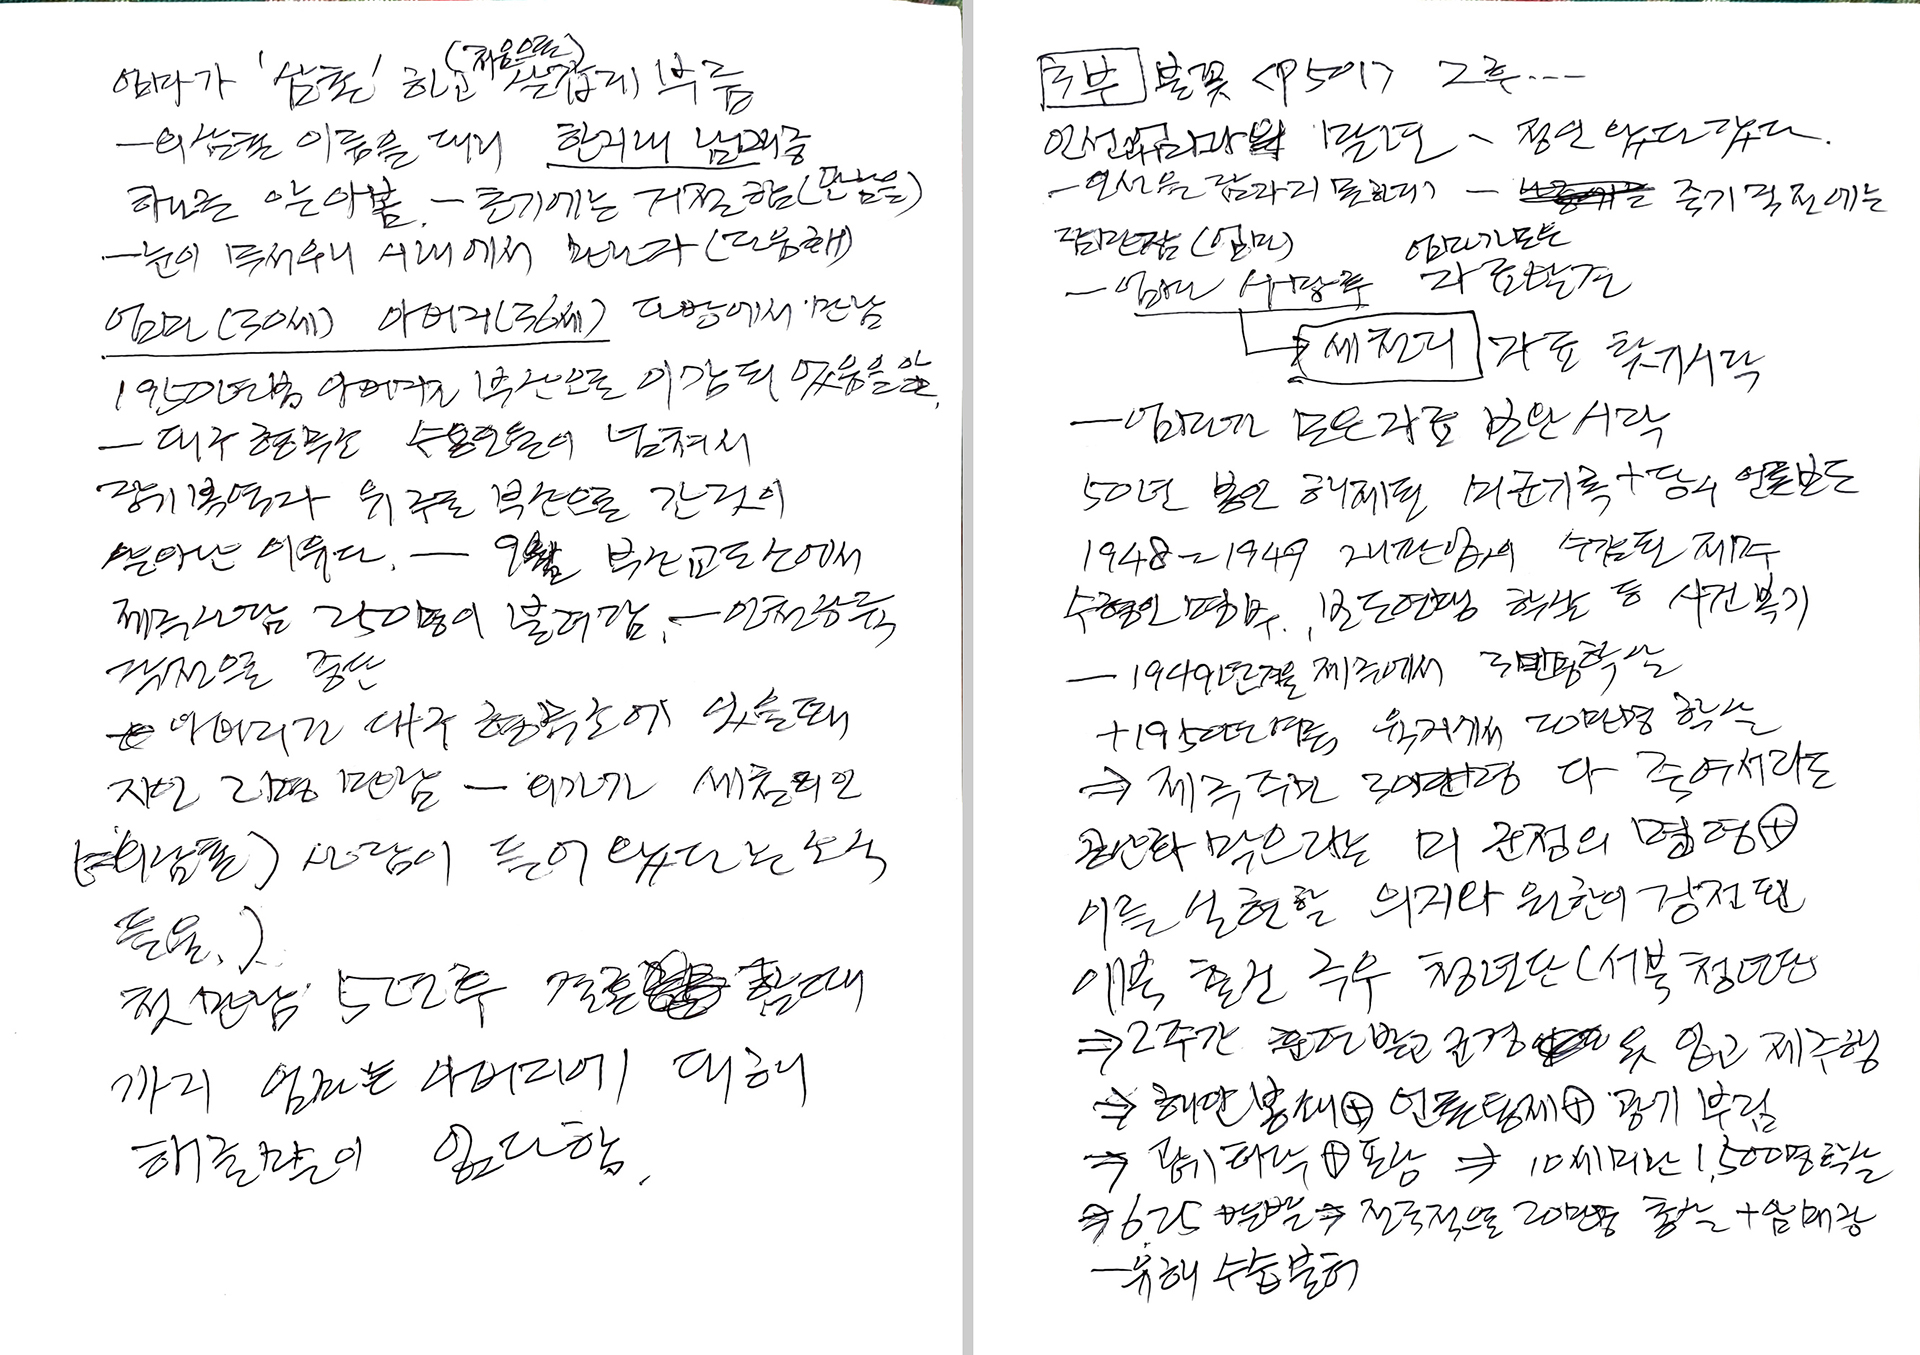 엄마가 '삼촌' 하고 (처음으로) 살갑게 부름
—외삼촌 이름을 대니 한지내 남매중
하나는 알아봄. — 초기에는 거절함(만남을)
—눈이 무서우니 시내에서 만나자 (다음해)
엄마(30세) 아버지(36세) 다방에서 만남
1950년봄 아버지는 부산으로 이감되 있음을 앎.
— 대구 형무소 수용인들이 넘쳐서
장기복역자 위주로 부산으로 간것이
살아난 이유다. — 9월 부산교도소에서
제주사람 250명이 불려감. —인천상륙
작전으로 중단
아버지가 대구 형무소에 있을때
지인 2명 만남 — 외가가 세천리인
(외삼촌) 사람이 들어 왔다는 소식
들음.)
첫 만남 5년후 결혼 할때
까지 엄마는 아버지에 대해
해줄말이 없다함.
3부 불꽃 <P501> 그후...
인선엄마 말년, 정신 왔다 갔다.
—인선은 잠자리 못한다 — 죽기 직전에는
잠만잠 (엄마)
—엄마 사망후 엄마가모은 자료발견
→ 세천리 자료 찾기시작
—엄마가 모은자료 보완시작
50년 봉인 해제된 미군기록+당시 언론보도
1948-1949 재판없이 수감된 제주
수형인 명부., 보도연맹 학살 등 사건복기
— 1949년겨울 제주에서 3만명학살
+1950년여름 육지에서 20만명 학살
⇒ 제주주민 30만명 다 죽여서라도
공산화 막으라는 미 군정의 명령⊕
이를 실현할 의지와 원한이 장전된
이북 출신 극우 청년단(서북청년단
⇒2주간 훈련받고 군경 옷 입고 제주행
⇒ 해안봉쇄⊕ 언론통제⊕ 광기 부림
⇒ 광기허락⊕포상 ⇒ 10세미만 1,500명학살
⇒625 발발⇒ 전국적으로 20만명 총살 +암매장
—유해 수습불허